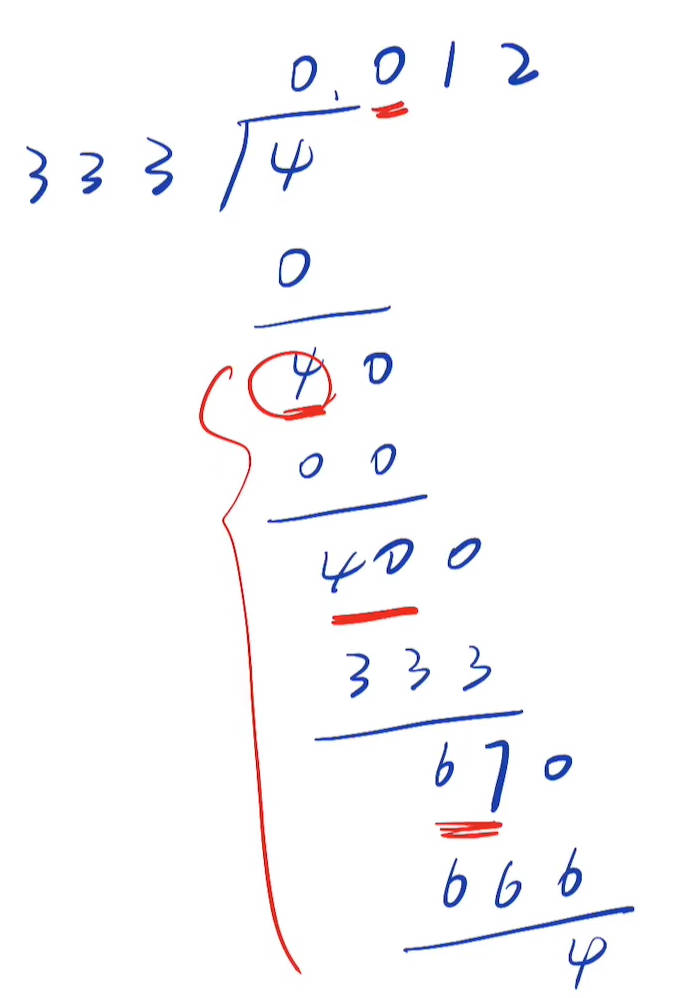 0.012
333 4
0
40
00
400
333
670
666
4